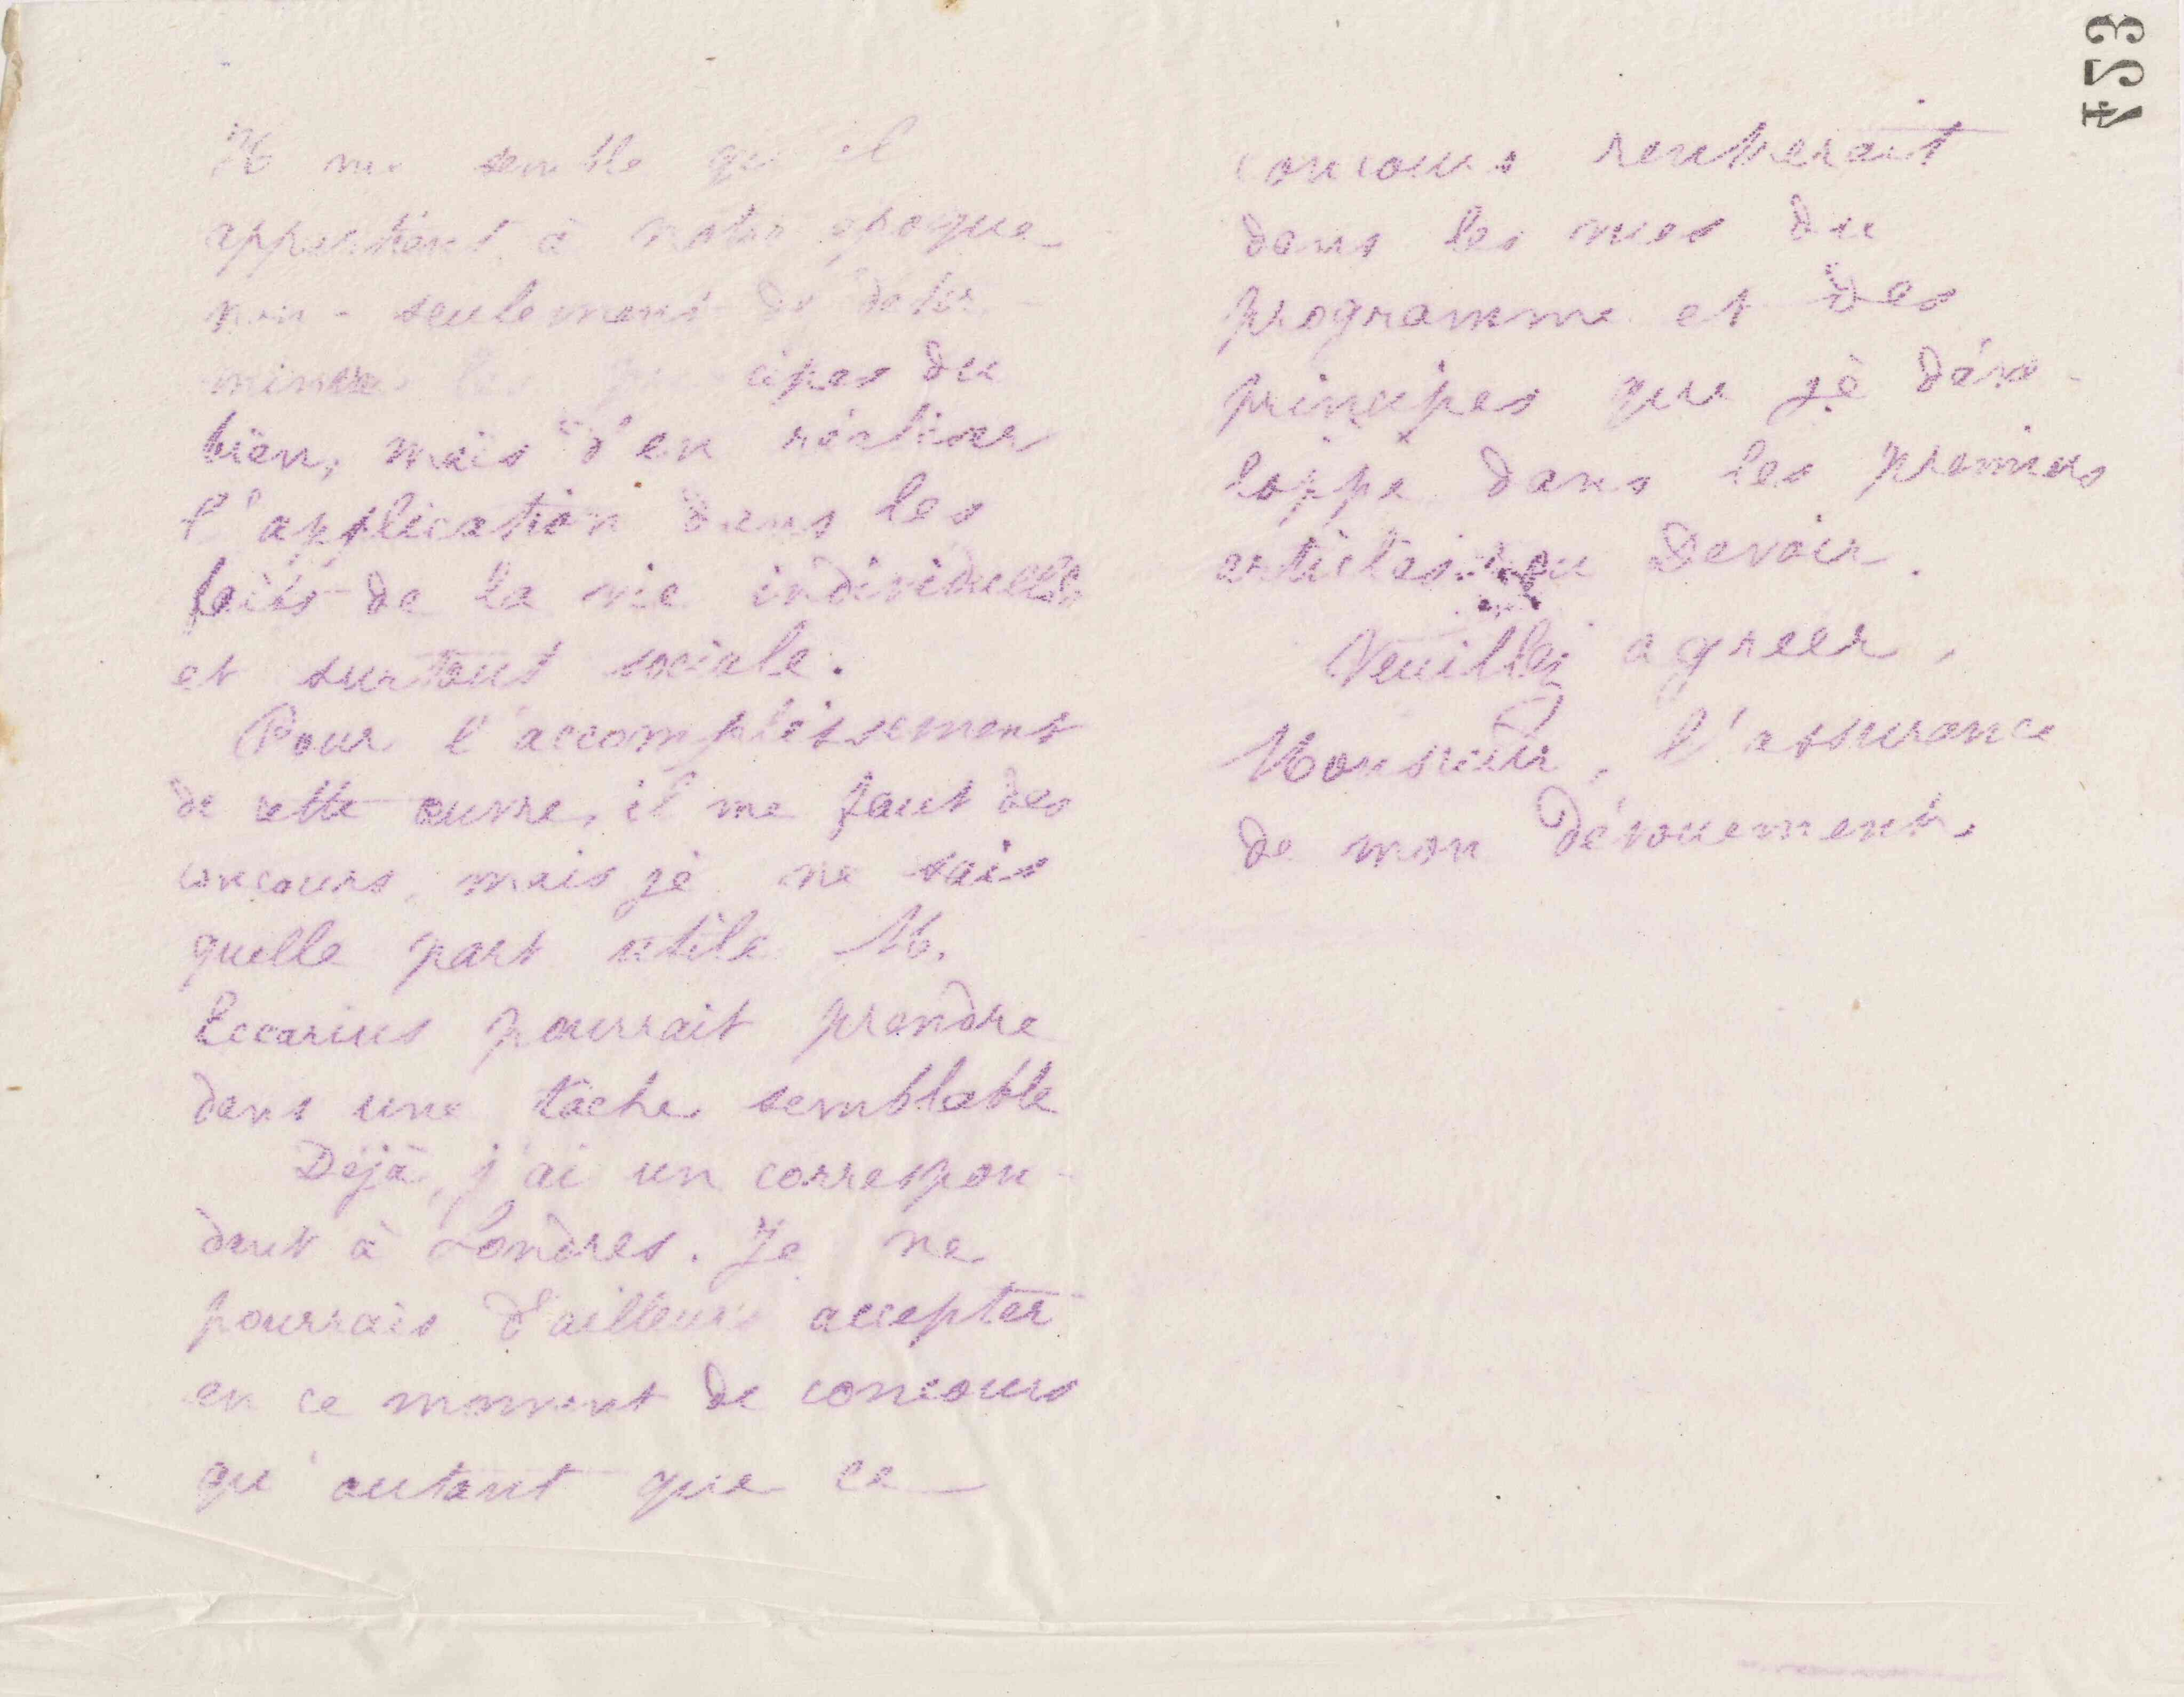 Il me semble qu'il
appartient à notre époque
non-seulement de déter-
miner les principes du
bien, mais d'en réaliser
l'application dans les
faits de la vie individuelle
et surtout sociale.
Pour l'accomplissement
de cette œuvre, il me faut des
concours, mais je ne sais
quelle part utile M.
Eccarius pourrait prendre
dans une tâche semblable
Déjà, j'ai un correspon-
dant à Londres. Je ne
pourrais d'ailleurs accepter
en ce moment de concours
qu'autant que ce
concours rentrerait
dans les vues du
programme et des
principes que je déve-
loppe dans les premiers
articles du Devoir.
Veuillez agréer,
Monsieur, l'assurance
de mon dévouement.
423